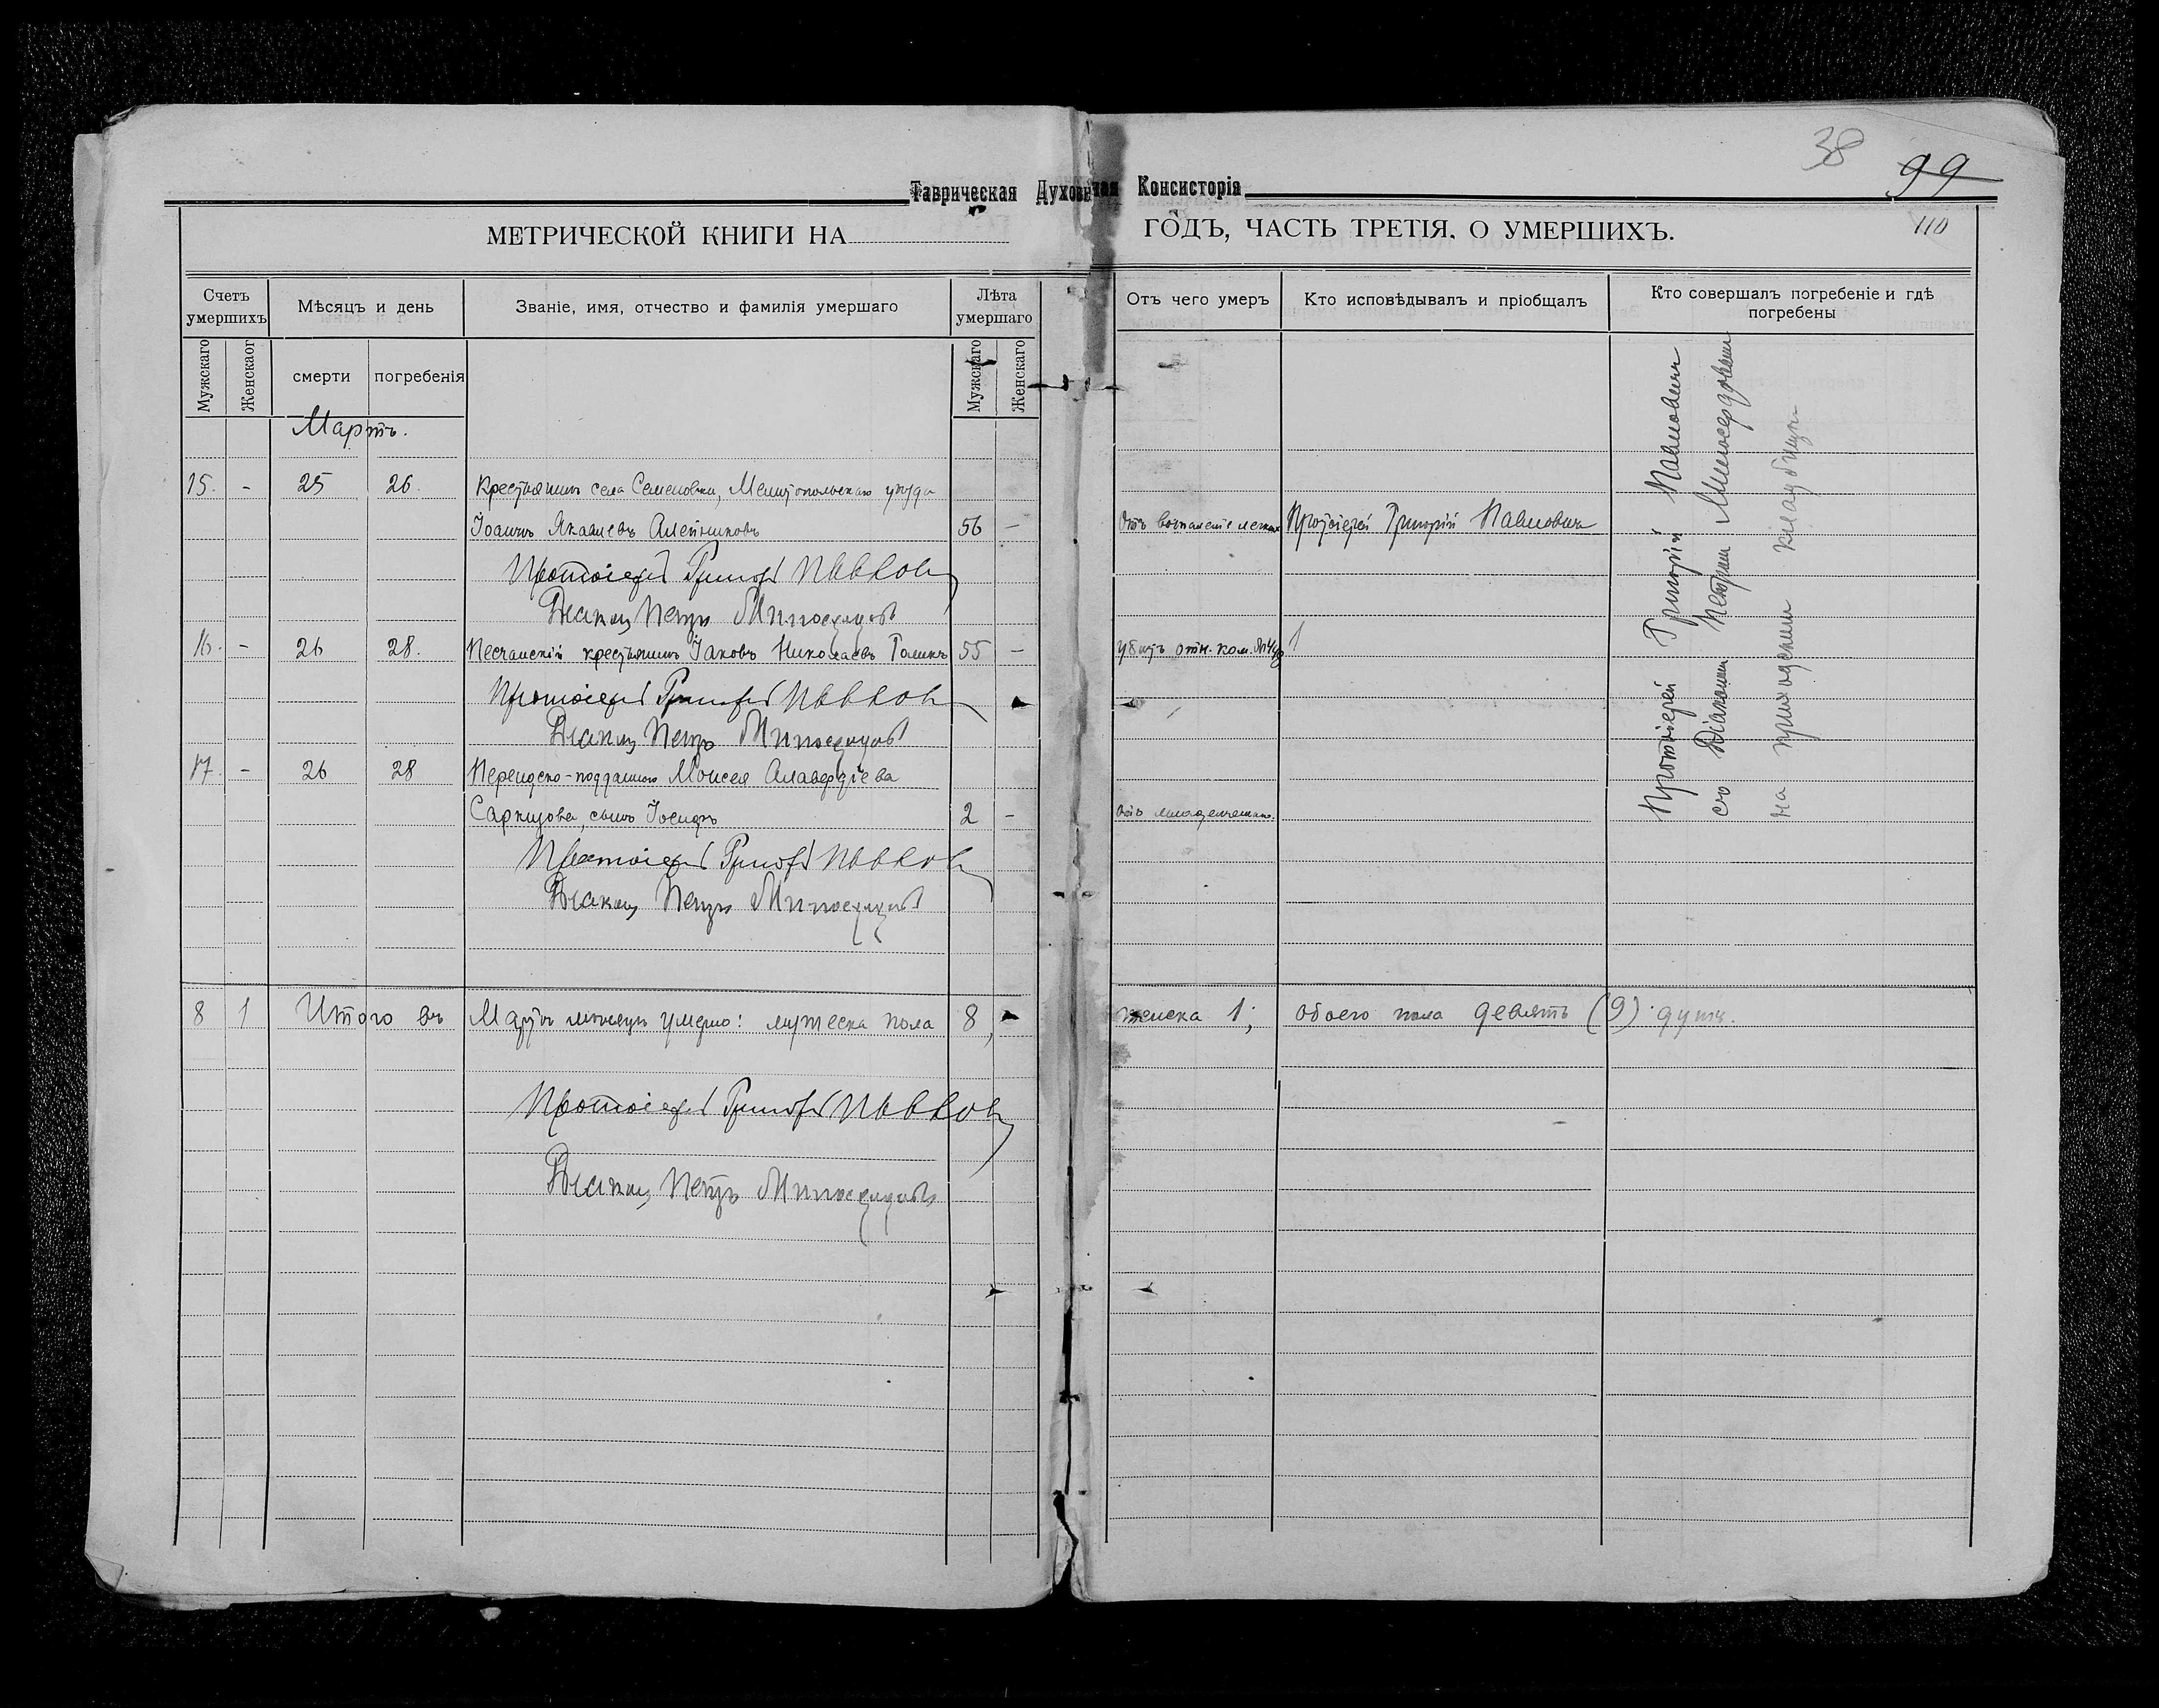 38 99
Таврическая Духовная Консисторія
110
МЕТРИЧЕСКОЙ КНИГИ НА ГОДЪ, ЧАСТЬ ТРЕТІЯ. О УМЕРШИХЪ.
Счетъ умершихъ
Мѣсяцъ и день
Званіе, имя, отчество и фамилія умершаго
Лѣта умершаго
Отъ чего умеръ
Кто исповѣдывалъ и пріобщалъ
Кто совершалъ погребеніе и гдѣ погребены
Мужскаго
Женскаог
смерти
погребенія
Мужскаго
Женскаго
Мартъ.
15. - 25 26. Крестьянинъ села Семеновки, Мелитопольскаго уѣзда
Іоаннъ Яковлевъ Алейниковъ 56 - Отъ воспаленія легкихъ Протоіерей Григорій Павловичъ
Протоіерей Григорій Павлович
Діаконъ Петръ Милосердовъ
16. - 26 28. Песчанскій крестьянинъ Іаковъ Николаевъ 55 -
Протоіерей Григорій Павлович
Діаконъ Петръ Милосердовъ
17. - 26 28 Персидско-подданнаго Моисея Алавердіева
Саркисова, сынъ Іосифъ 2 - отъ младенческ.
Протоіерей Григорій Павлович
Діаконъ Петръ Милосердовъ
Протоіерей Григорій Павловичъ
съ Діакономъ Петромъ Милосердовымъ
на приходскомъ кладбищѣ
8 1 Итого въ Мартѣ мѣсяцѣ умерло: мужеска пола 8, женска 1; обоего пола девять (9) душъ.
Протоіерей Григорій Павлович
Діаконъ Петръ Милосердовъ